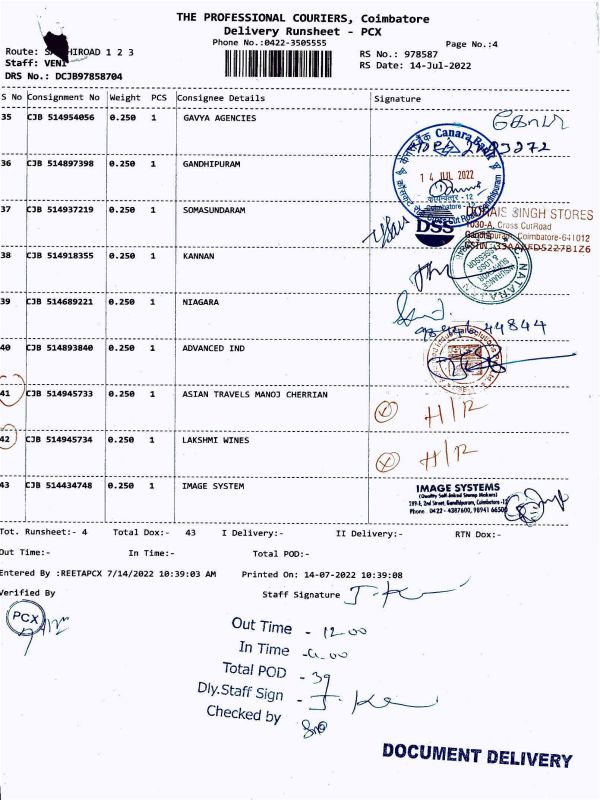 THE PROFESSIONAL COURIERS, Coimbatore
Delivery Runsheet - PCX
Phone No.:0422-3505555
Page No.:4
Route: S HIROAD 1 2 3
RS No.: 978587
Staff: VENI
RS Date: 14-Jul-2022
DRS No.: DCJB97858704
S No Consignment No Weight PCS Consignee Details Signature
35 CJB 514954056 0.250 1 GAVYA AGENCIES
36 CJB 514897398 0.250 1 GANDHIPURAM
Canara Bank
14 JUL 2022
कोयम्बत्तूर - 12
Coimbatore - 12
Cross Cut Road, Gandhipuram
37 CJB 514937219 0.250 1 SOMASUNDARAM
DSS
DORAIS SINGH STORES
1030-A, Cross CutRoad
Gandhipuram, Coimbatore-641012
38 CJB 514918355 0.250 1 KANNAN
INSURANCE
SURVEYOR
& LOSS
ASSESSOR
39 CJB 514689221 0.250 1 NIAGARA
44844
40 CJB 514893840 0.250 1 ADVANCED IND
41 CJB 514945733 0.250 1 ASIAN TRAVELS MANOJ CHERRIAN
H/R
42 CJB 514945734 0.250 1 LAKSHMI WINES
H/R
43 CJB 514434748 0.250 1 IMAGE SYSTEM
IMAGE SYSTEMS
(Quality Self-Inked Stamp Makers)
289-E, 2nd Street, Gandhipuram, Coimbatore -12
Phone : 0422 - 4387600, 98941 66500
Tot. Runsheet:- 4 Total Dox:- 43 I Delivery:- II Delivery:- RTN Dox:-
Out Time:- In Time:- Total POD:-
Entered By :REETAPCX 7/14/2022 10:39:03 AM Printed On: 14-07-2022 10:39:08
Verified By
Staff Signature
PCX
Out Time - 12.00
In Time -
Total POD - 39
Dly.Staff Sign -
Checked by
DOCUMENT DELIVERY